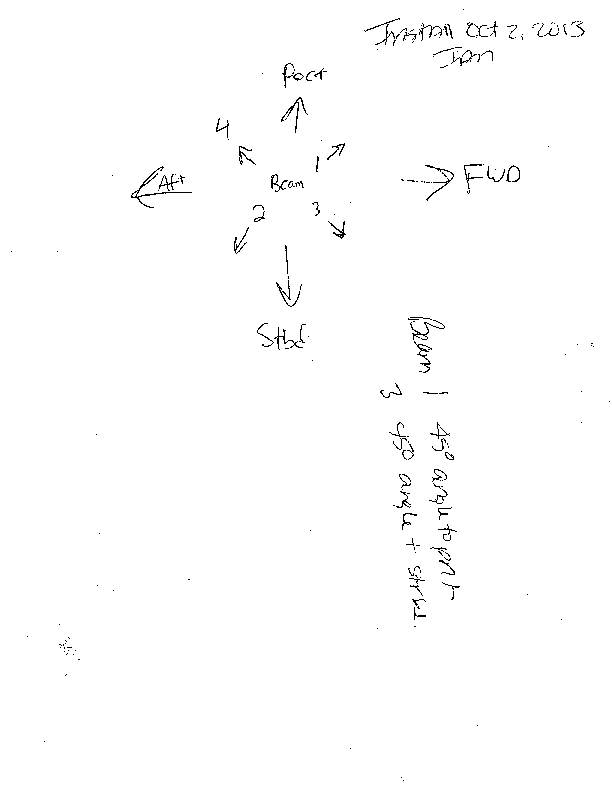 Install Oct 2, 2013
Port
4
1
Aft
Beam
FWD
2
3
Stbd
Beam 1 45° angle to port
3 45° angle + strbd.